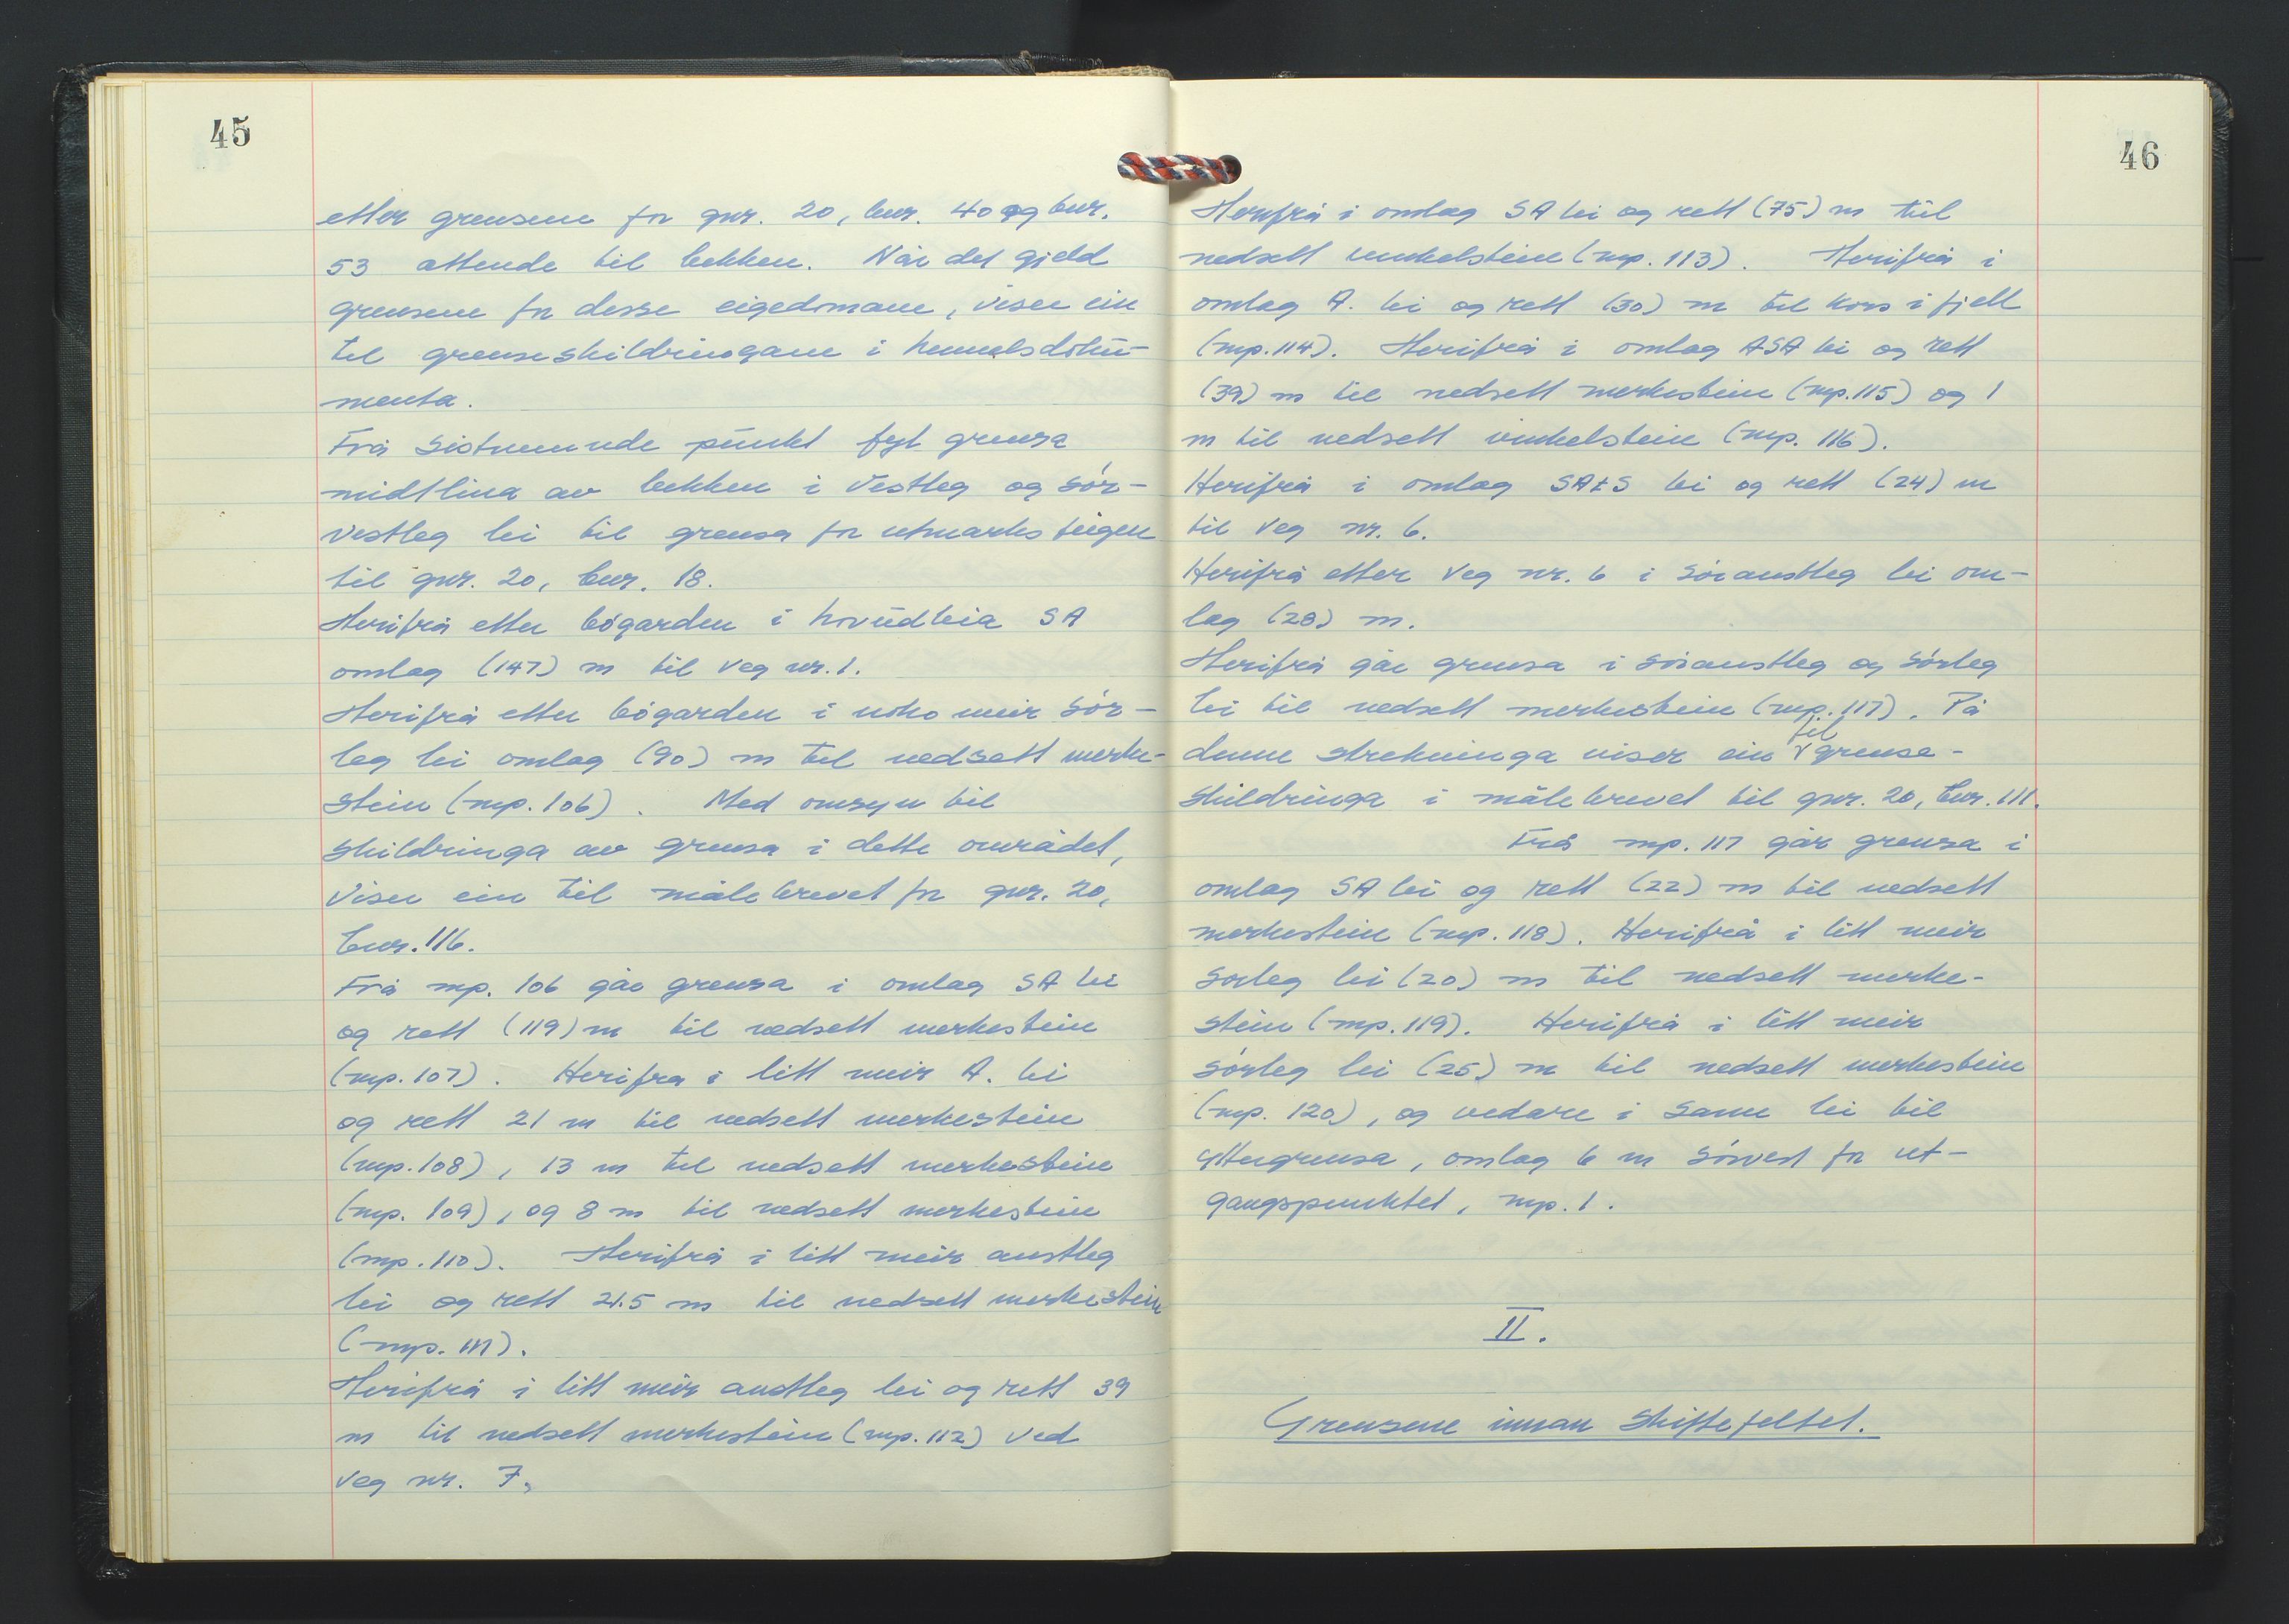 45
etter grensene for gnr. 20, bnr. 40 og bnr.
53 attende til bekken. Når det gjeld
grensene for desse eigedomane, viser ein
til grenseskildringane i heimelsdoku-
menta.
Frå sistnemnde punkt fyl grensa
midtlina av bekken i vestleg og sør-
vestleg lei til grensa for utmarksteigen
til gnr. 20, bnr. 18.
Herifrå etter bøgarden i hovudleia SA
omlag (147) m til veg nr. 1.
Herifrå etter bøgarden i noko meir sør-
leg lei omlag (90) m til nedsett merke-
stein (mp. 106). Med omsyn til
skildringa av grensa i dette området,
viser ein til målebrevet for gnr. 20,
bnr. 116.
Frå mp. 106 går grensa i omlag SA lei
og rett (119) m til nedsett merkestein
(mp. 107). Herifra i litt meir A. lei
og rett 21 m til nedsett merkestein
(mp. 108), 13 m til nedsett merkestein
(mp. 109), og 8 m til nedsett merkestein
(mp. 110). Herifrå i litt meir austleg
lei og rett 21.5 m til nedsett merkestein
(mp. 111).
Herifrå i litt meir austleg lei og rett 39
m til nedsett merkestein (mp. 112) ved
veg nr. 7.
46
Herifrå i omlag SA lei og rett (75) m til
nedsett vinkelstein (mp. 113). Herifrå i
omlag A. lei og rett (30) m til kors i fjell
(mp. 114). Herifrå i omlag ASA lei og rett
(39) m til nedsett merkestein (mp. 115) og 1
m til nedsett vinkelstein (mp. 116).
Herifrå i omlag SAtS lei og rett (24) m
til veg nr. 6.
Herifrå etter veg nr. 6 i søraustleg lei om-
lag (28) m.
Herifrå går grensa i søraustleg og sørleg
lei til nedsett merkestein (mp. 117). På
denne strekninga viser ein til grense-
skildringa i målebrevet til gnr. 20, bnr. 111.
Frå mp. 117 går grensa i
omlag SA lei og rett (22) m til nedsett
merkestein (mp. 118). Herifrå i litt meir
sørleg lei (20) m til nedsett merke-
stein (mp. 119). Herifrå i litt meir
sørleg lei (25) m til nedsett merkestein
(mp. 120), og vedare i same lei til
yttergrensa, omlag 6 m sørvest for ut-
gangspunktet, mp. 1.
II.
Grensene innan skiftefeltet.